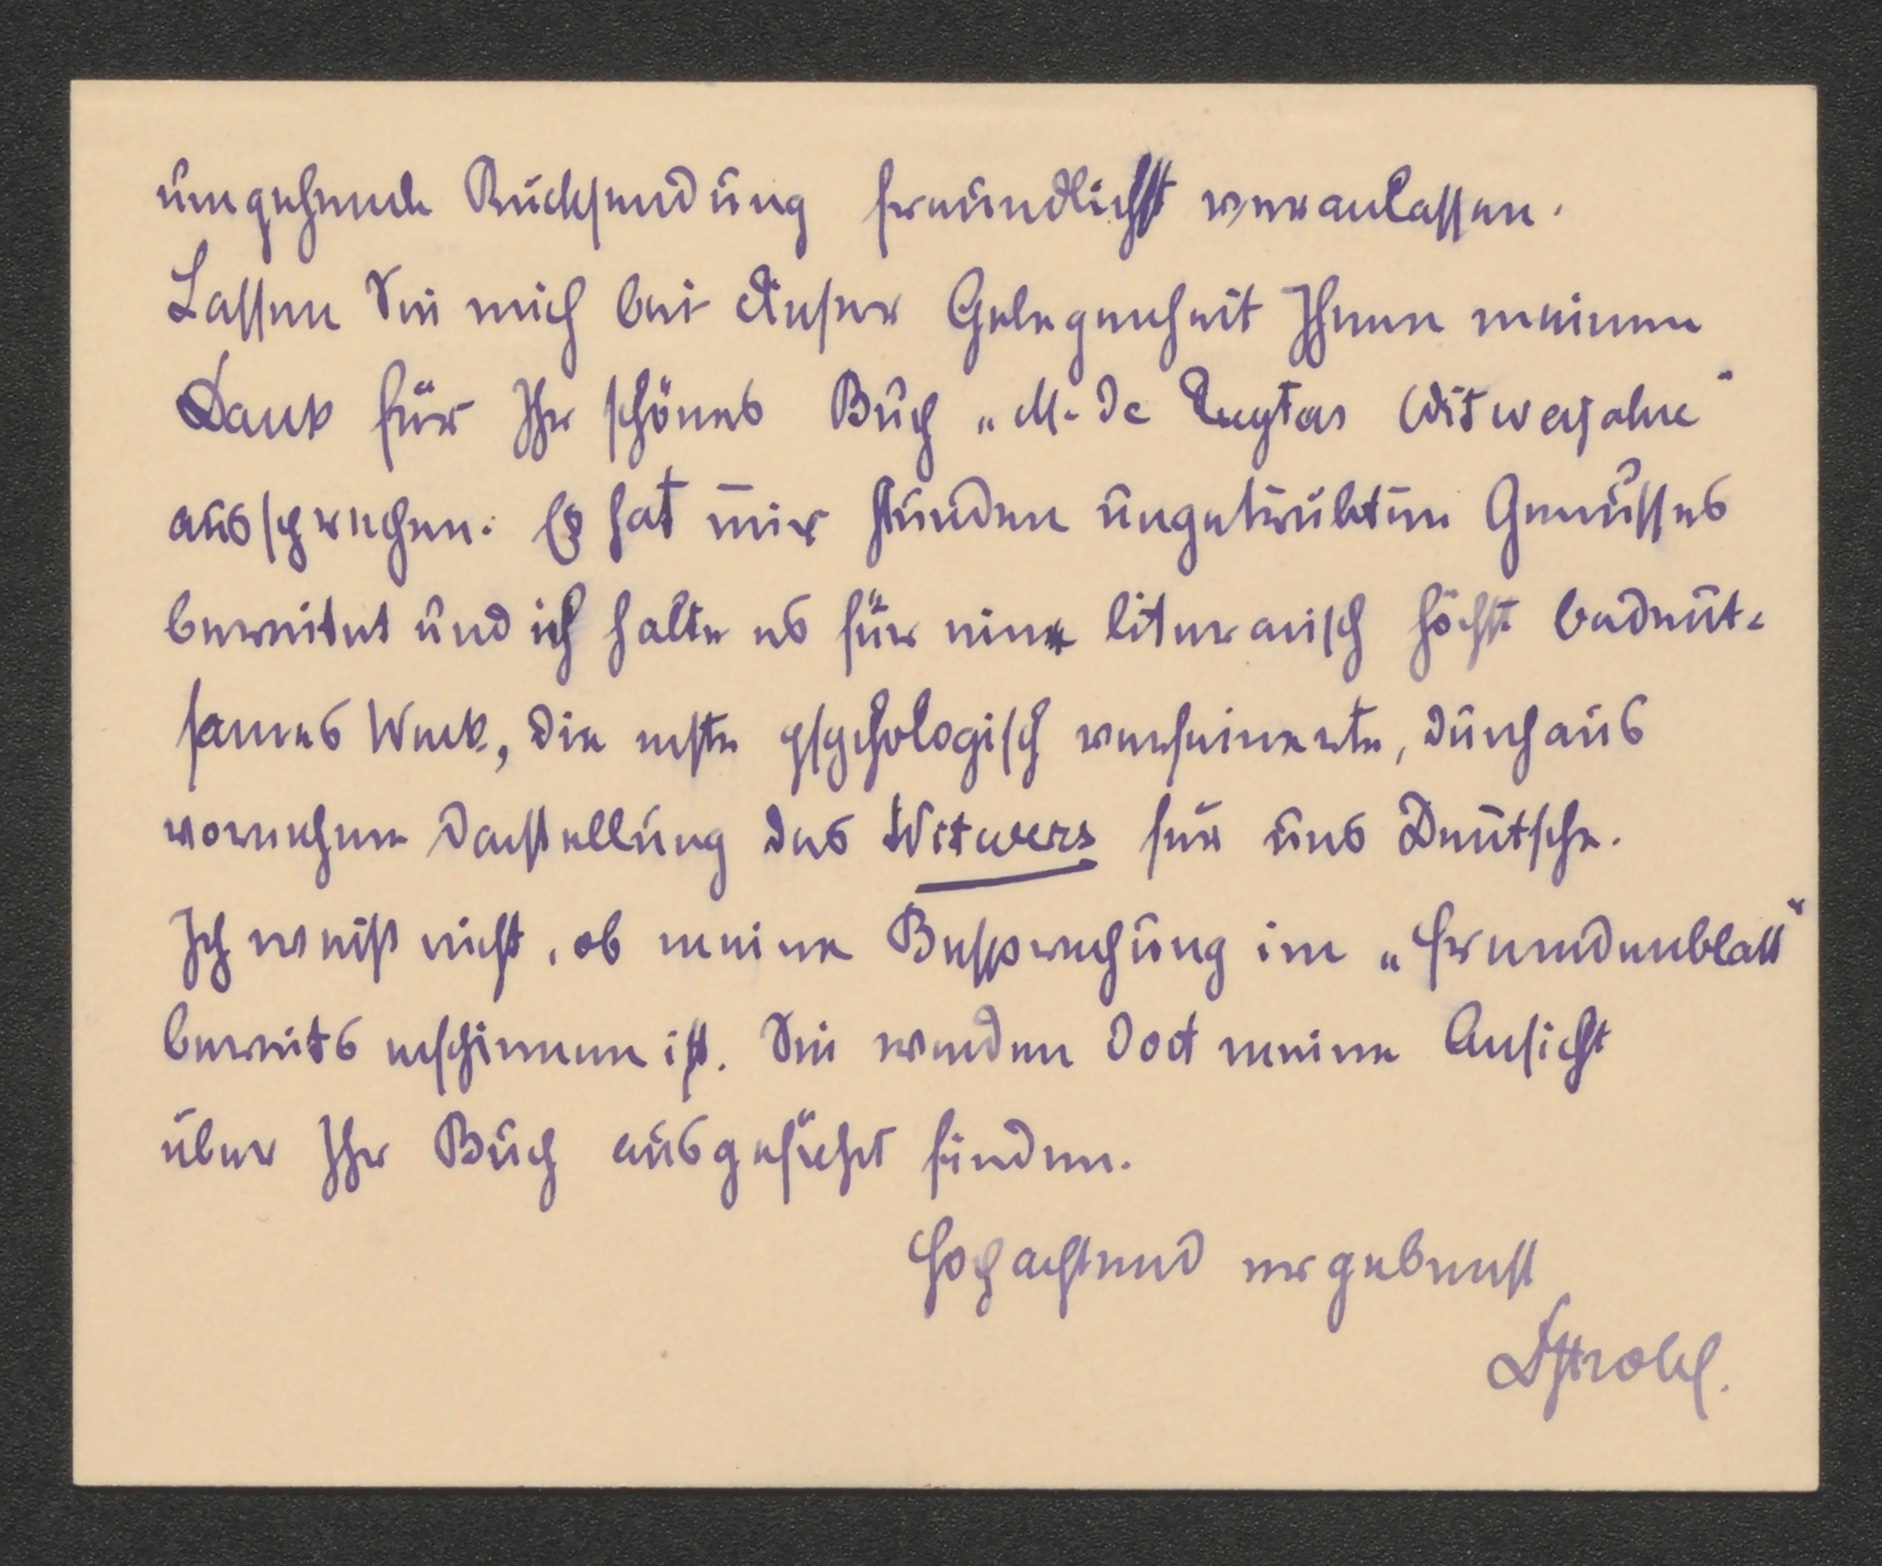 umgehende Rücksendung freundlichst veranlassen.
Lassen Sie mich bei dieser Gelegenheit Ihnen meinen
Dank für Ihr schönes Buch „M. de Witwerjahre“
aussprechen. Es hat mir Stunden ungetrübten Genusses
bereitet und ich halte es für eine literarisch höchst bedeut-
sames Werk, die erste psychologisch verfeinerte, durchaus
vornehme Darstellung des Witwers für uns Deutsche.
Ich weiß nicht, ob meine Besprechung im „Fremdenblatt“
bereits erschienen ist. Sie werden dort meine Ansicht
über Ihr Buch ausgeführt finden.
Hochachtend ergebenst
Strobl.